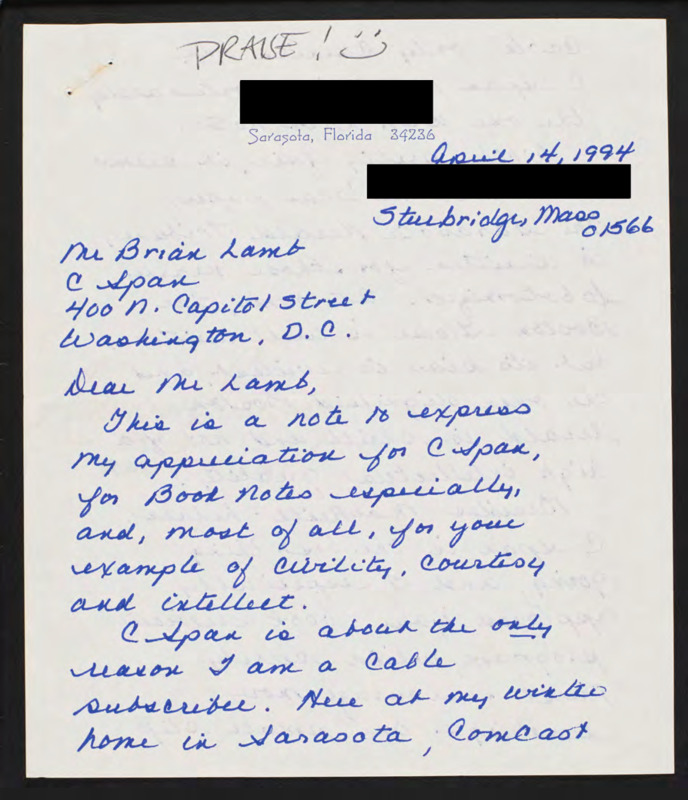 PRAISE! 
Sarasota, Florida 34236
April 14, 1994
Sturbridge, Mass
01566
Mr Brian Lamb
C Span
400 N. Capitol Street
Washington, D.C.
Dear Mr Lamb,
This is a note to express
my appreciation for C Span,
for Book Notes especially,
and, most of all, for your
example of civility, courtesy
and intellect.
C Span is about the only
reason I am a Cable
subscriber. Here at my winter
home in Sarasota, Comcast